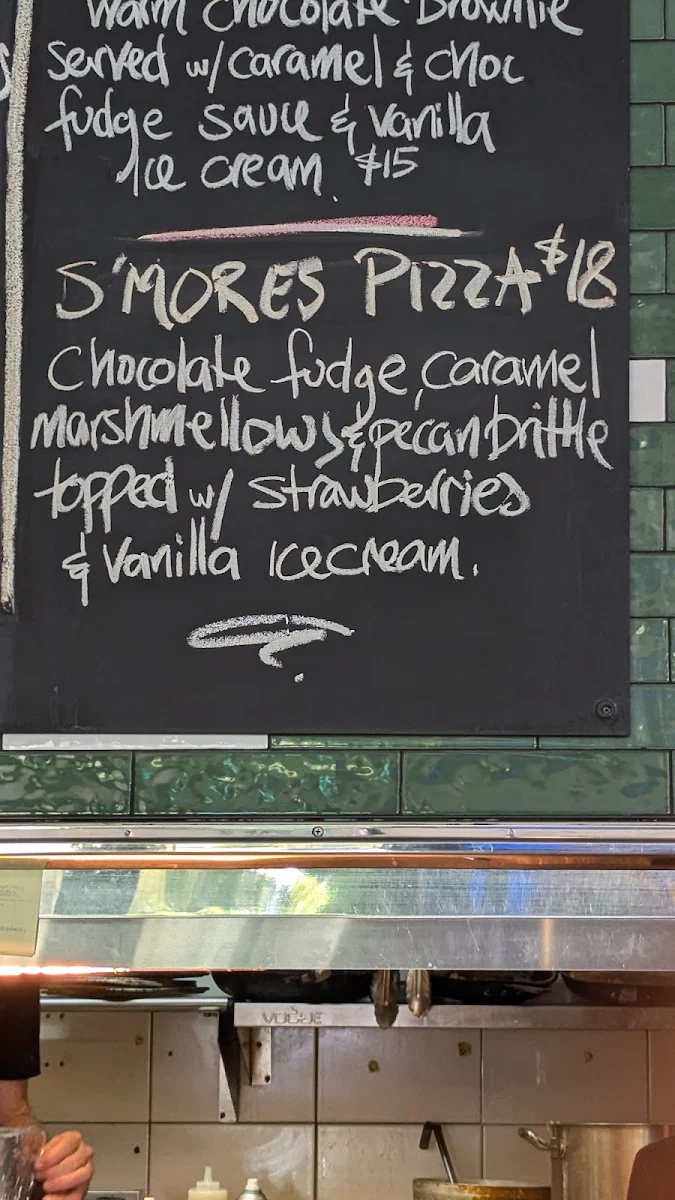 Warm Chocolate Brownie
served w/ caramel & choc
fudge sauce & vanilla
Ice cream. $15
S'MORES PIZZA $18
Chocolate fudge, caramel
marshmellows & pecan brittle
topped w/ strawberries
& vanilla icecream.
VOGUE